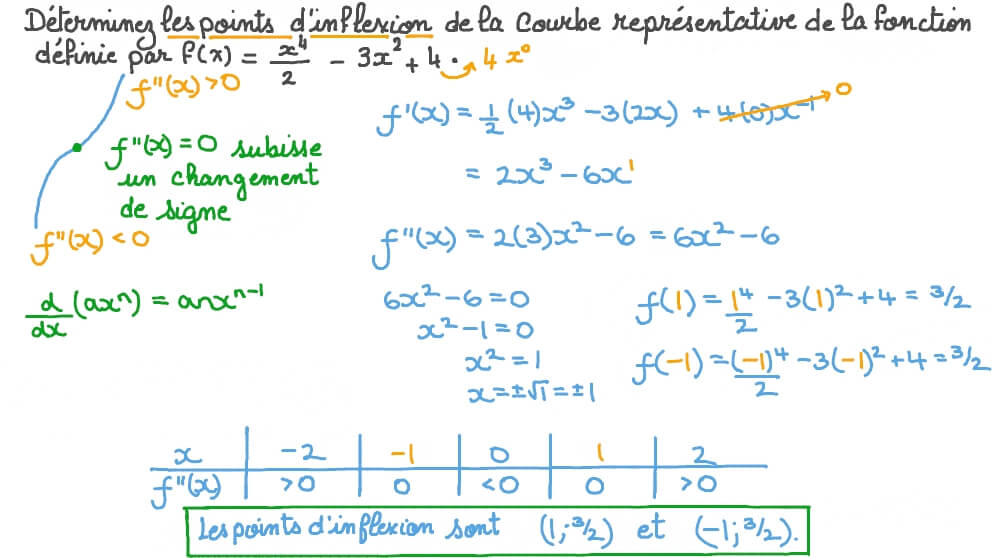 Déterminez les points d'inflexion de la courbe représentative de la fonction
définie par f(x) = x⁴/2 - 3x² + 4. 4x⁰
f''(x) > 0
f''(x) = 0 subisse
un changement
de signe
f''(x) < 0
d/dx (axⁿ) = anxⁿ⁻¹
f'(x) = 1/2 (4)x³ - 3(2x) + 4(0)x⁻¹ 0
= 2x³ - 6x¹
f''(x) = 2(3)x² - 6 = 6x² - 6
6x² - 6 = 0
x² - 1 = 0
x² = 1
x = ±√1 = ±1
f(1) = 1⁴/2 - 3(1)² + 4 = 3/2
f(-1) = (-1)⁴/2 - 3(-1)² + 4 = 3/2
x -2 -1 0 1 2
f''(x) >0 0 <0 0 >0
Les points d'inflexion sont (1; 3/2) et (-1; 3/2).